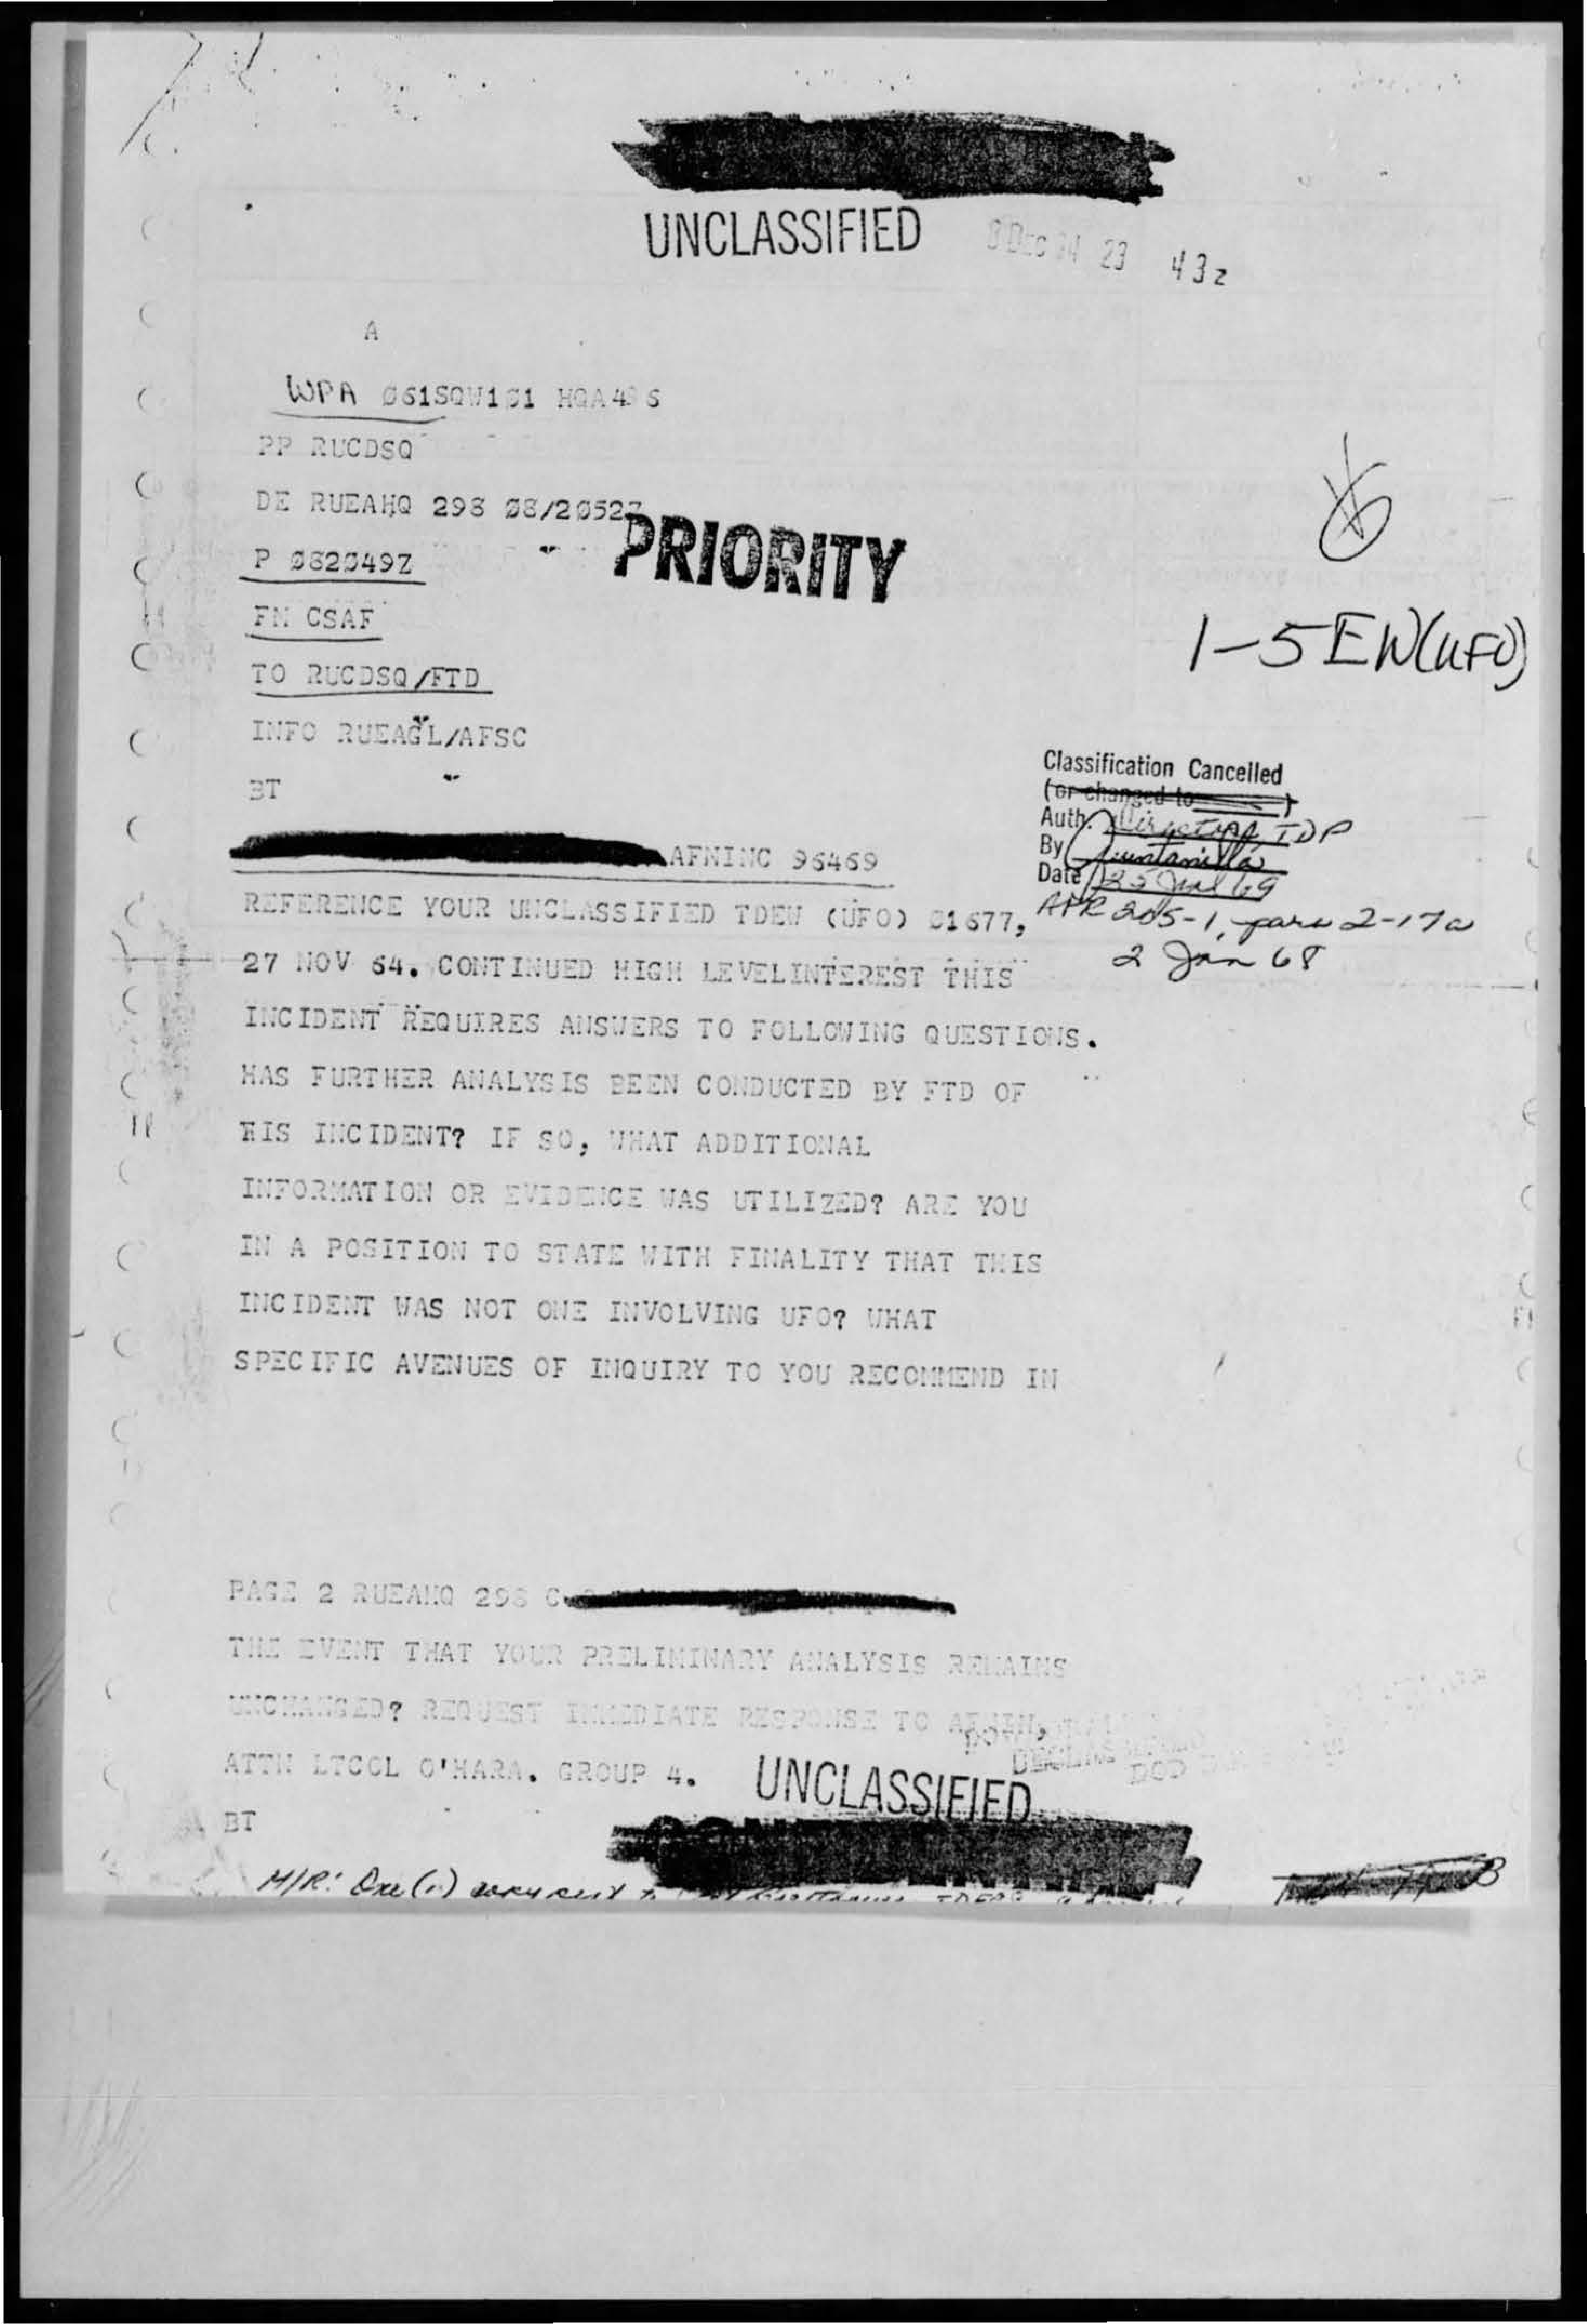 UNCLASSIFIED
8 DEC 64 23 43z
A
WPA Ø61SQW1Ø1 HQA
PP RUCDSQ
DE RUEAHQ 298 Ø8/2Ø52Z
PRIORITY
P Ø82Ø49Z
FM CSAF
1-5EW(UFO)
TO RUCDSQ/FTD
INFO RUEAGL/AFSC
BT
Classification Cancelled
(or changed to )
Auth. Director, TDP
By Quintanilla
Date 69
AFR 205-1, para 2-17a
2 Jan 68
AFNINC 96469
REFERENCE YOUR UNCLASSIFIED TDEW (UFO) Ø1677,
27 NOV 64. CONTINUED HIGH LEVELINTEREST THIS
INCIDENT REQUIRES ANSWERS TO FOLLOWING QUESTIONS.
HAS FURTHER ANALYSIS BEEN CONDUCTED BY FTD OF
HIS INCIDENT? IF SO, WHAT ADDITIONAL
INFORMATION OR EVIDENCE WAS UTILIZED? ARE YOU
IN A POSITION TO STATE WITH FINALITY THAT THIS
INCIDENT WAS NOT ONE INVOLVING UFO? WHAT
SPECIFIC AVENUES OF INQUIRY TO YOU RECOMMEND IN
PAGE 2 RUEAHQ 298 C
THE EVENT THAT YOUR PRELIMINARY ANALYSIS REMAINS
UNCHANGED? REQUEST IMMEDIATE RESPONSE TO AFNIN,
ATTN LTCOL O'HARA. GROUP 4.
UNCLASSIFIED
BT
M/R: One (1) copy sent to